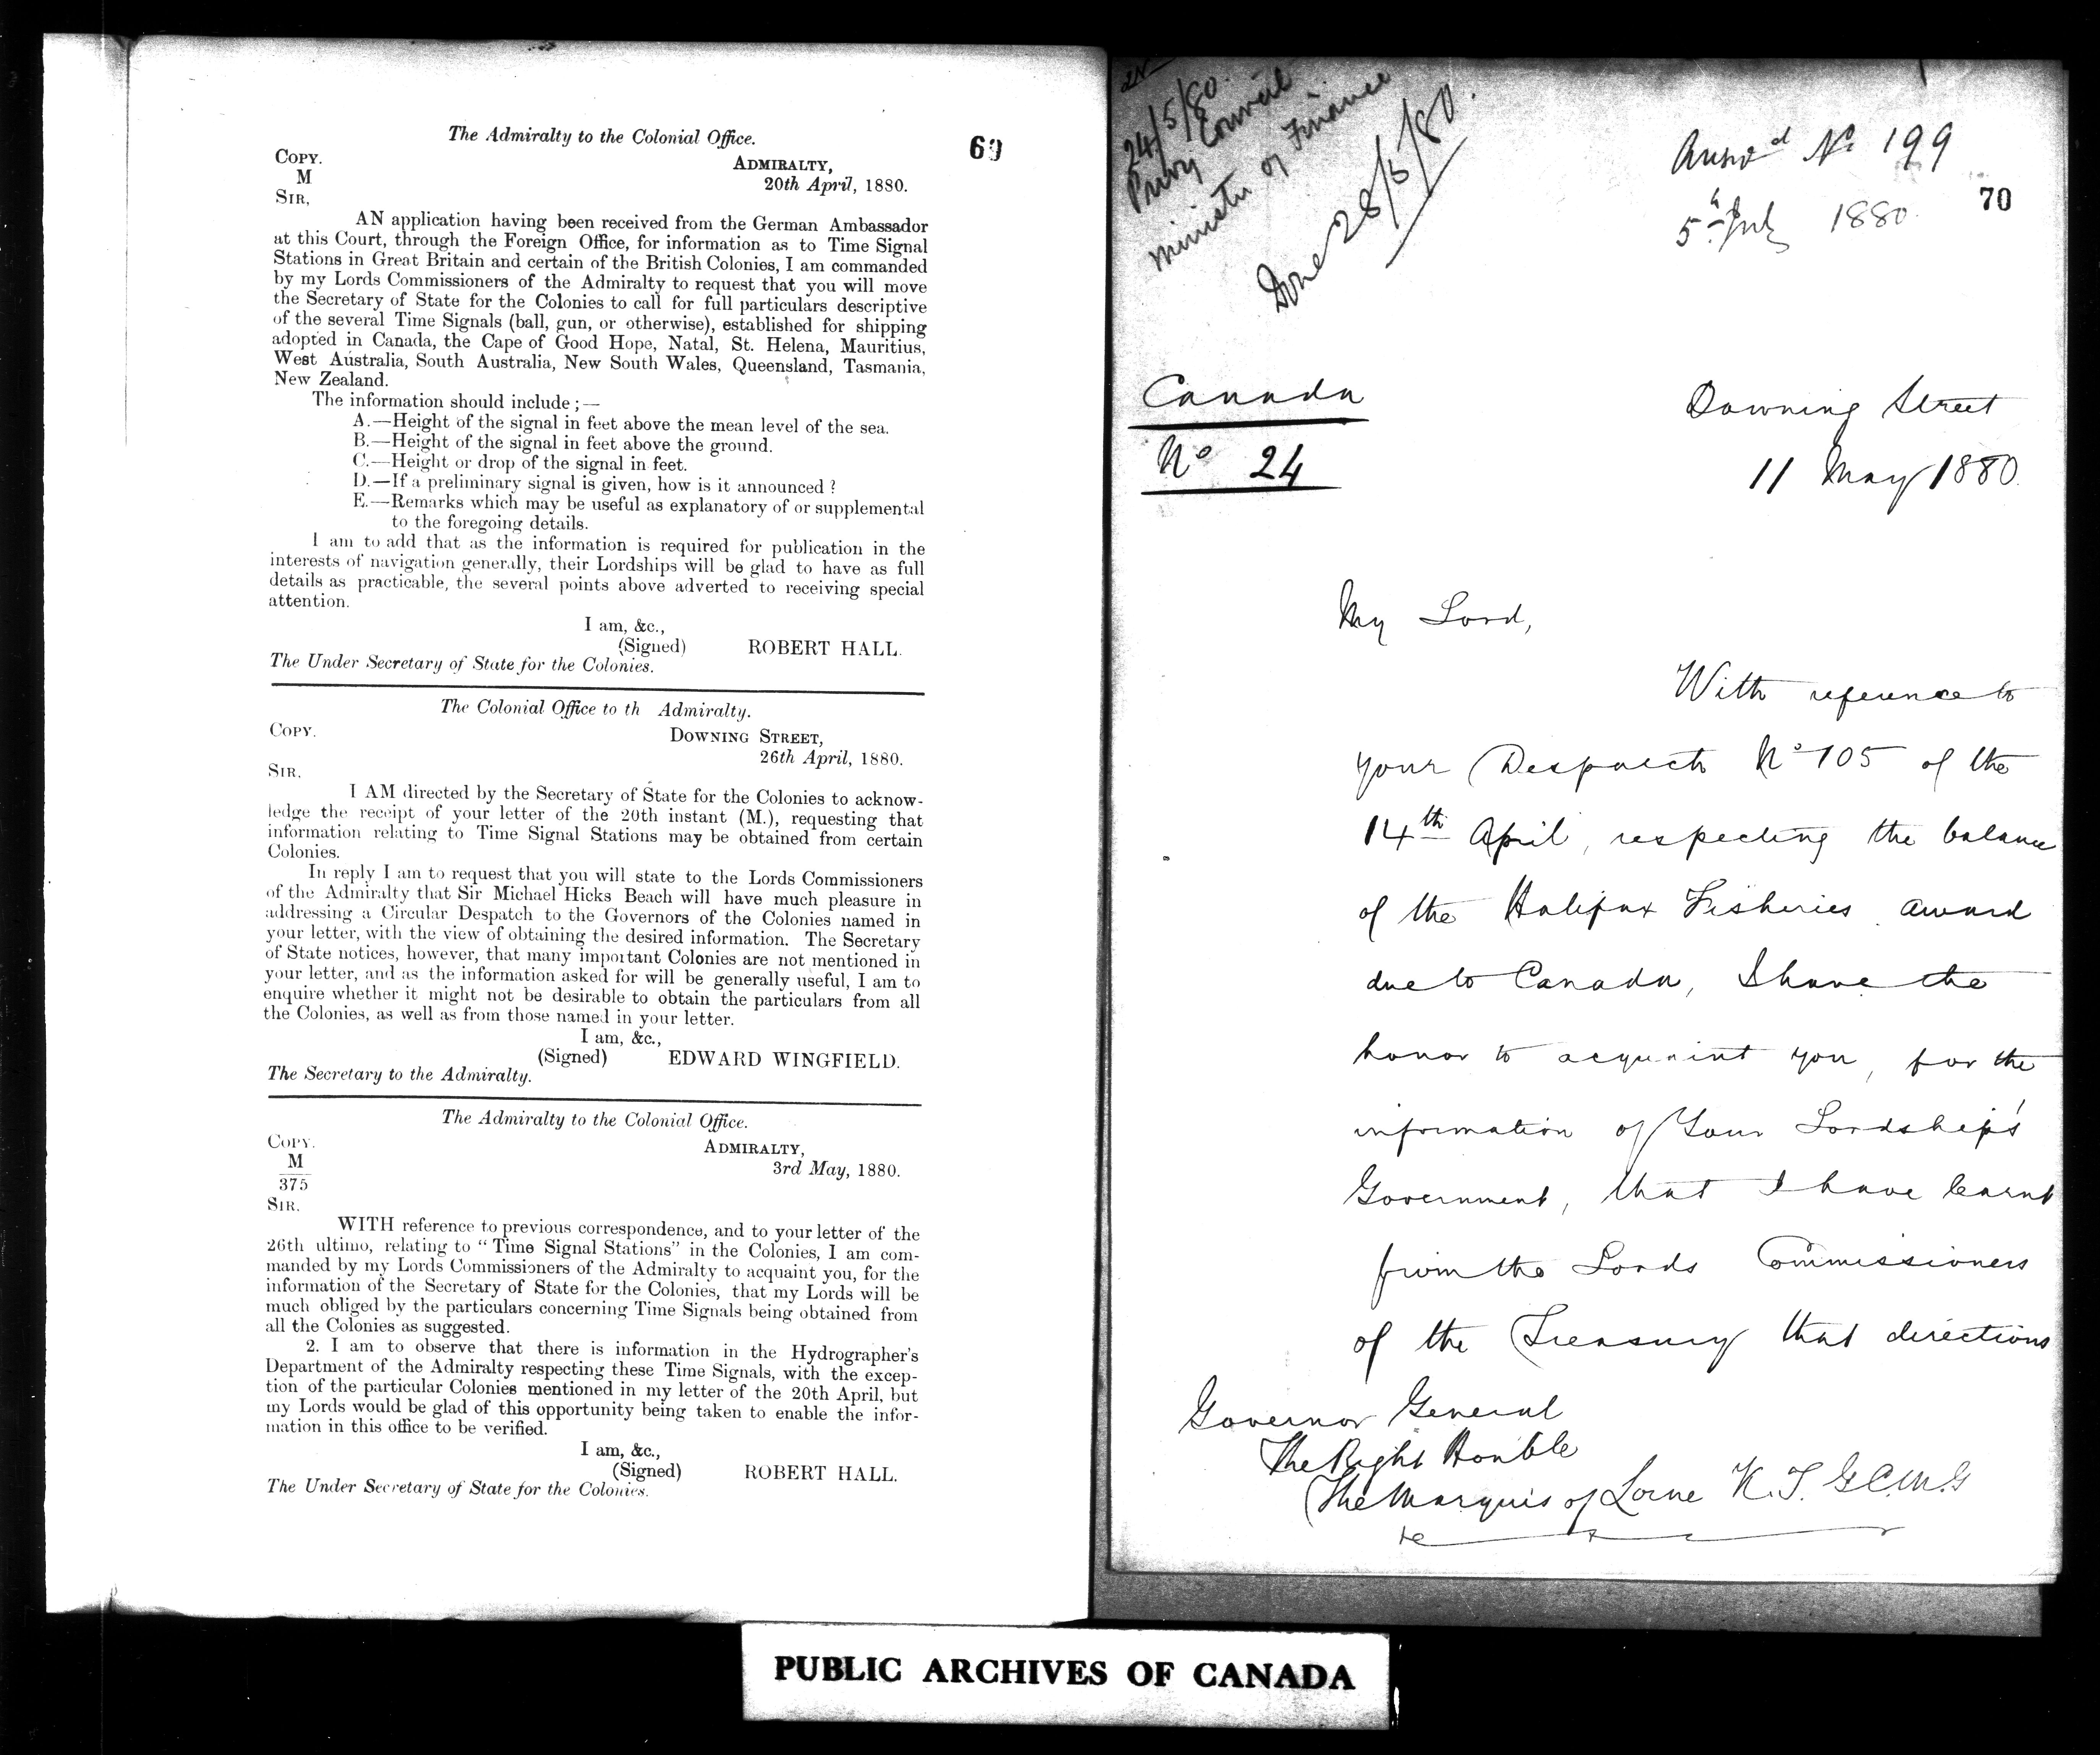 69
The Admiralty to the Colonial Office.
COPY.
M
ADMIRALTY,
20th April, 1880.
SIR,
AN application having been received from the German Ambassador
at this Court, through the Foreign Office, for information as to Time Signal
Stations in Great Britain and certain of the British Colonies, I am commanded
by my Lords Commissioners of the Admiralty to request that you will move
the Secretary of State for the Colonies to call for full particulars descriptive
of the several Time Signals (ball, gun, or otherwise), established for shipping
adopted in Canada, the Cape of Good Hope, Natal, St. Helena, Mauritius,
West Australia, South Australia, New South Wales, Queensland, Tasmania,
New Zealand.
The information should include ;—
A.—Height of the signal in feet above the mean level of the sea.
B.—Height of the signal in feet above the ground.
C.—Height or drop of the signal in feet.
D.—If a preliminary signal is given, how is it announced ?
E.—Remarks which may be useful as explanatory of or supplemental
to the foregoing details.
I am to add that as the information is required for publication in the
interests of navigation generally, their Lordships will be glad to have as full
details as practicable, the several points above adverted to receiving special
attention.
I am, &c.,
(Signed) ROBERT HALL.
The Under Secretary of State for the Colonies.
The Colonial Office to th Admiralty.
COPY.
DOWNING STREET,
26th April, 1880.
SIR.
I AM directed by the Secretary of State for the Colonies to acknow-
ledge the receipt of your letter of the 20th instant (M.), requesting that
information relating to Time Signal Stations may be obtained from certain
Colonies.
In reply I am to request that you will state to the Lords Commissioners
of the Admiralty that Sir Michael Hicks Beach will have much pleasure in
addressing a Circular Despatch to the Governors of the Colonies named in
your letter, with the view of obtaining the desired information. The Secretary
of State notices, however, that many important Colonies are not mentioned in
your letter, and as the information asked for will be generally useful, I am to
enquire whether it might not be desirable to obtain the particulars from all
the Colonies, as well as from those named in your letter.
I am, &c.,
(Signed) EDWARD WINGFIELD.
The Secretary to the Admiralty.
The Admiralty to the Colonial Office.
COPY.
M
375
ADMIRALTY,
3rd May, 1880.
SIR.
WITH reference to previous correspondence, and to your letter of the
26th ultimo, relating to “ Time Signal Stations” in the Colonies, I am com-
manded by my Lords Commissioners of the Admiralty to acquaint you, for the
information of the Secretary of State for the Colonies, that my Lords will be
much obliged by the particulars concerning Time Signals being obtained from
all the Colonies as suggested.
2. I am to observe that there is information in the Hydrographer's
Department of the Admiralty respecting these Time Signals, with the excep-
tion of the particular Colonies mentioned in my letter of the 20th April, but
my Lords would be glad of this opportunity being taken to enable the infor-
mation in this office to be verified.
I am, &c.,
(Signed) ROBERT HALL.
The Under Secretary of State for the Colonies.
24/5/80.
Privy Council
Minister of Finance
Done 28/5/80.
Answd No 199
5th July 1880
70
Canada
No 24
Downing Street
11 May 1880.
My Lord,
With reference to
your Despatch No 105 of the
14th April, respecting the balance
of the Halifax Fisheries award
due to Canada, I have the
honor to acquaint you, for the
information of Your Lordship's
Government, that I have learnt
from the Lords Commissioners
of the Treasury that directions
Governor General
The Right Honble
The Marquis of Lorne K.T. G.C.M.G
PUBLIC ARCHIVES OF CANADA